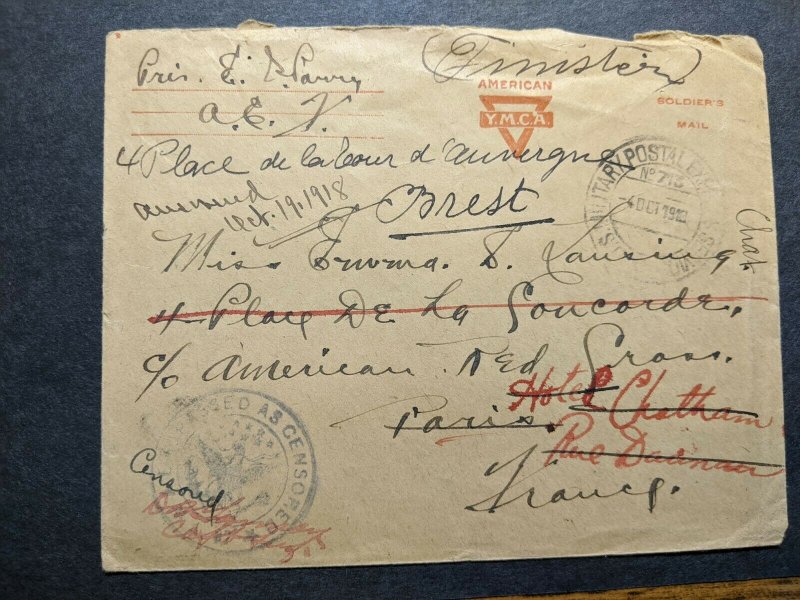 Finistère
AMERICAN
Y.M.C.A.
SOLDIER'S
MAIL
Priv. E. D. Parry
A.E.F.
4 Place de la Tour d'Auvergne
answered
Oct. 19. 1918
Brest
MILITARY POSTAL EX
No 713
4 OCT 1918
Chat
Miss Emma. S. Lansing
4 Place De La Concorde,
c/o American Red Cross.
Hotel Chatham
Paris.
Rue Daunou
France.
PASSED AS CENSORED
Censored
Capt.